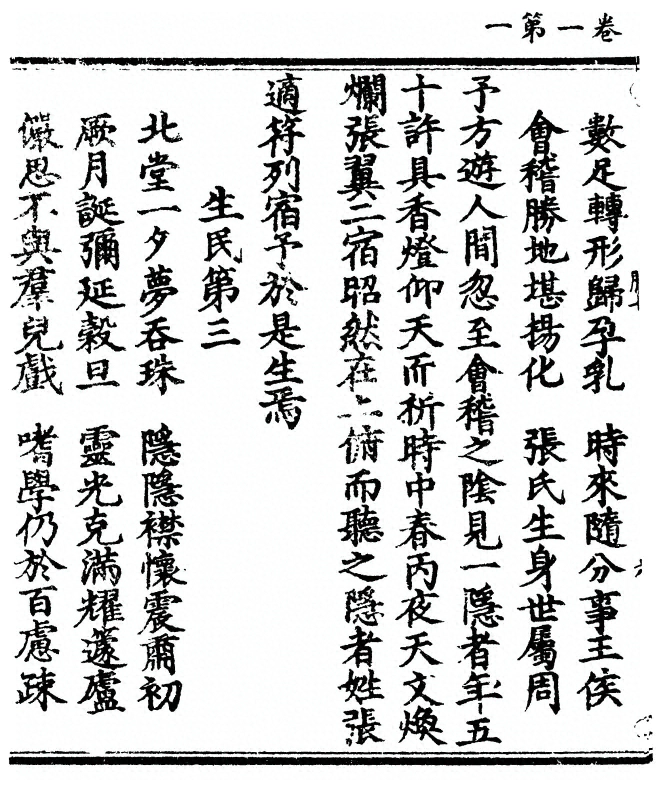 卷一第一
數足轉形歸孕乳　時來隨分事王侯
會稽勝地堪揚化　張氏生身世屬周
予方遊人間忽至會稽之陰見一隱者年五
十許具香燈仰天而祈時中春丙夜天文煥
爛張翼二宿昭然在上俯而聽之隱者姓張
適符列宿予於是生焉
生民第三
北堂一夕夢吞珠　隱隱襟懷震肅初
厥月誕彌延穀旦　靈光克滿耀蘧廬
儼思不與羣兒戲　嗜學仍於百慮疎